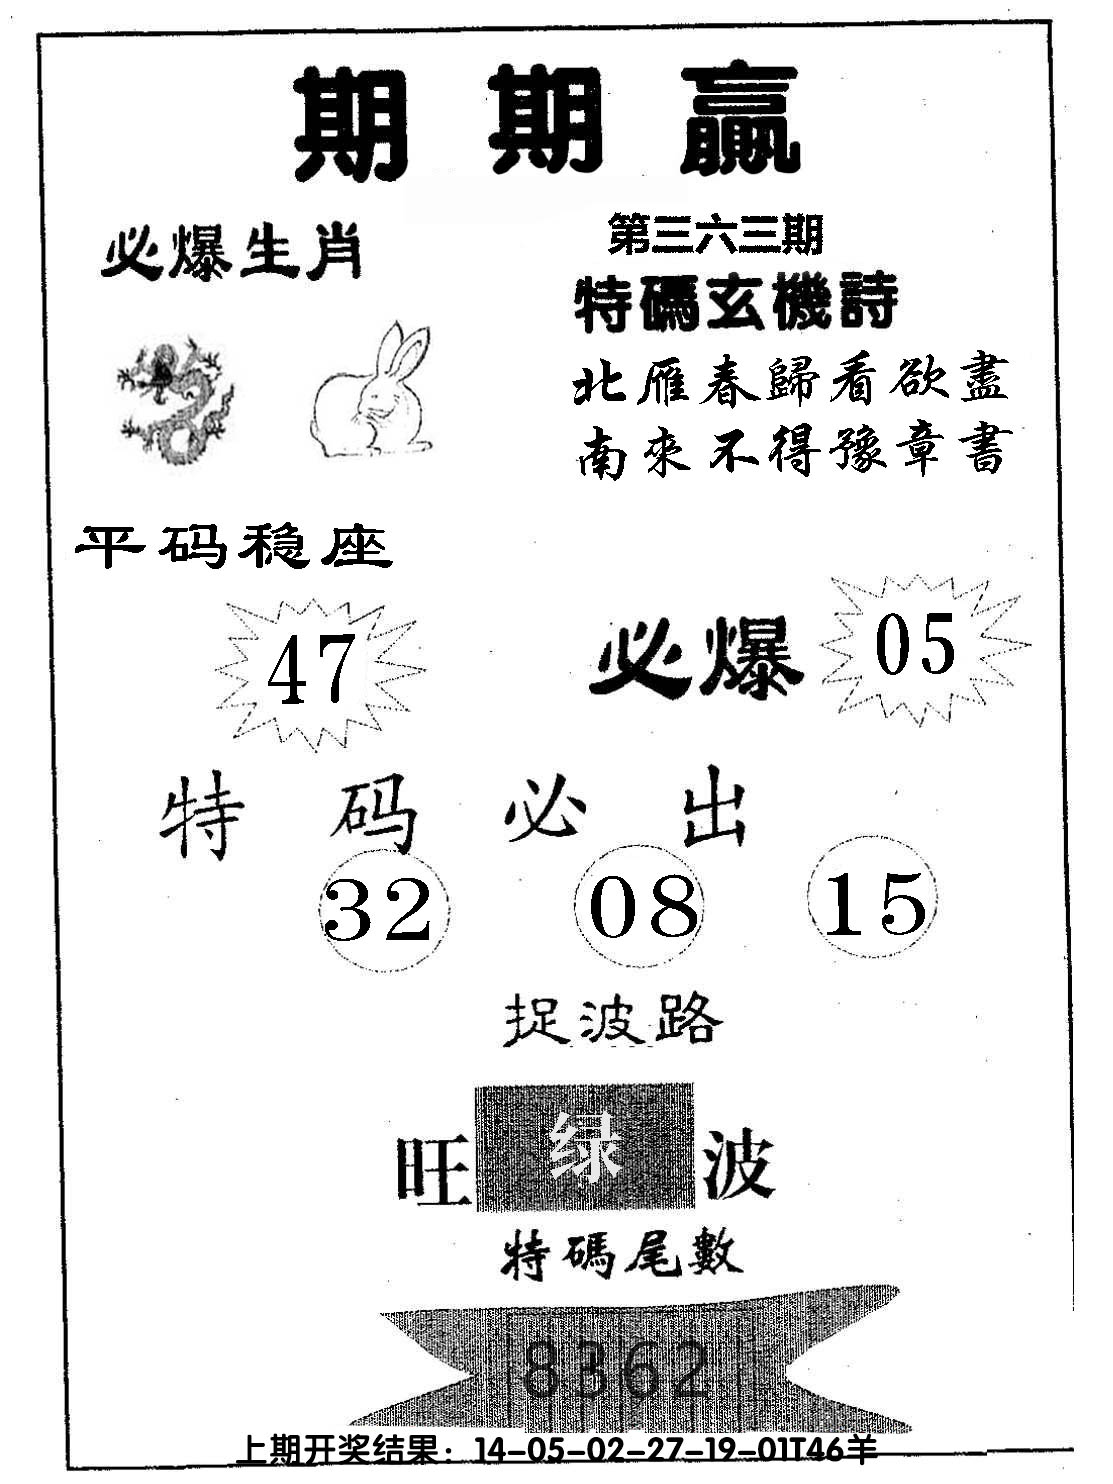 期期赢
必爆生肖
第三六三期
特碼玄機詩
北雁春歸看欲盡
南來不得豫章書
平码稳座
47
必爆 05
特码必出
32 08 15
捉波路
旺 绿 波
特碼尾數
8362
上期开奖结果：14-05-02-27-19-01T46羊